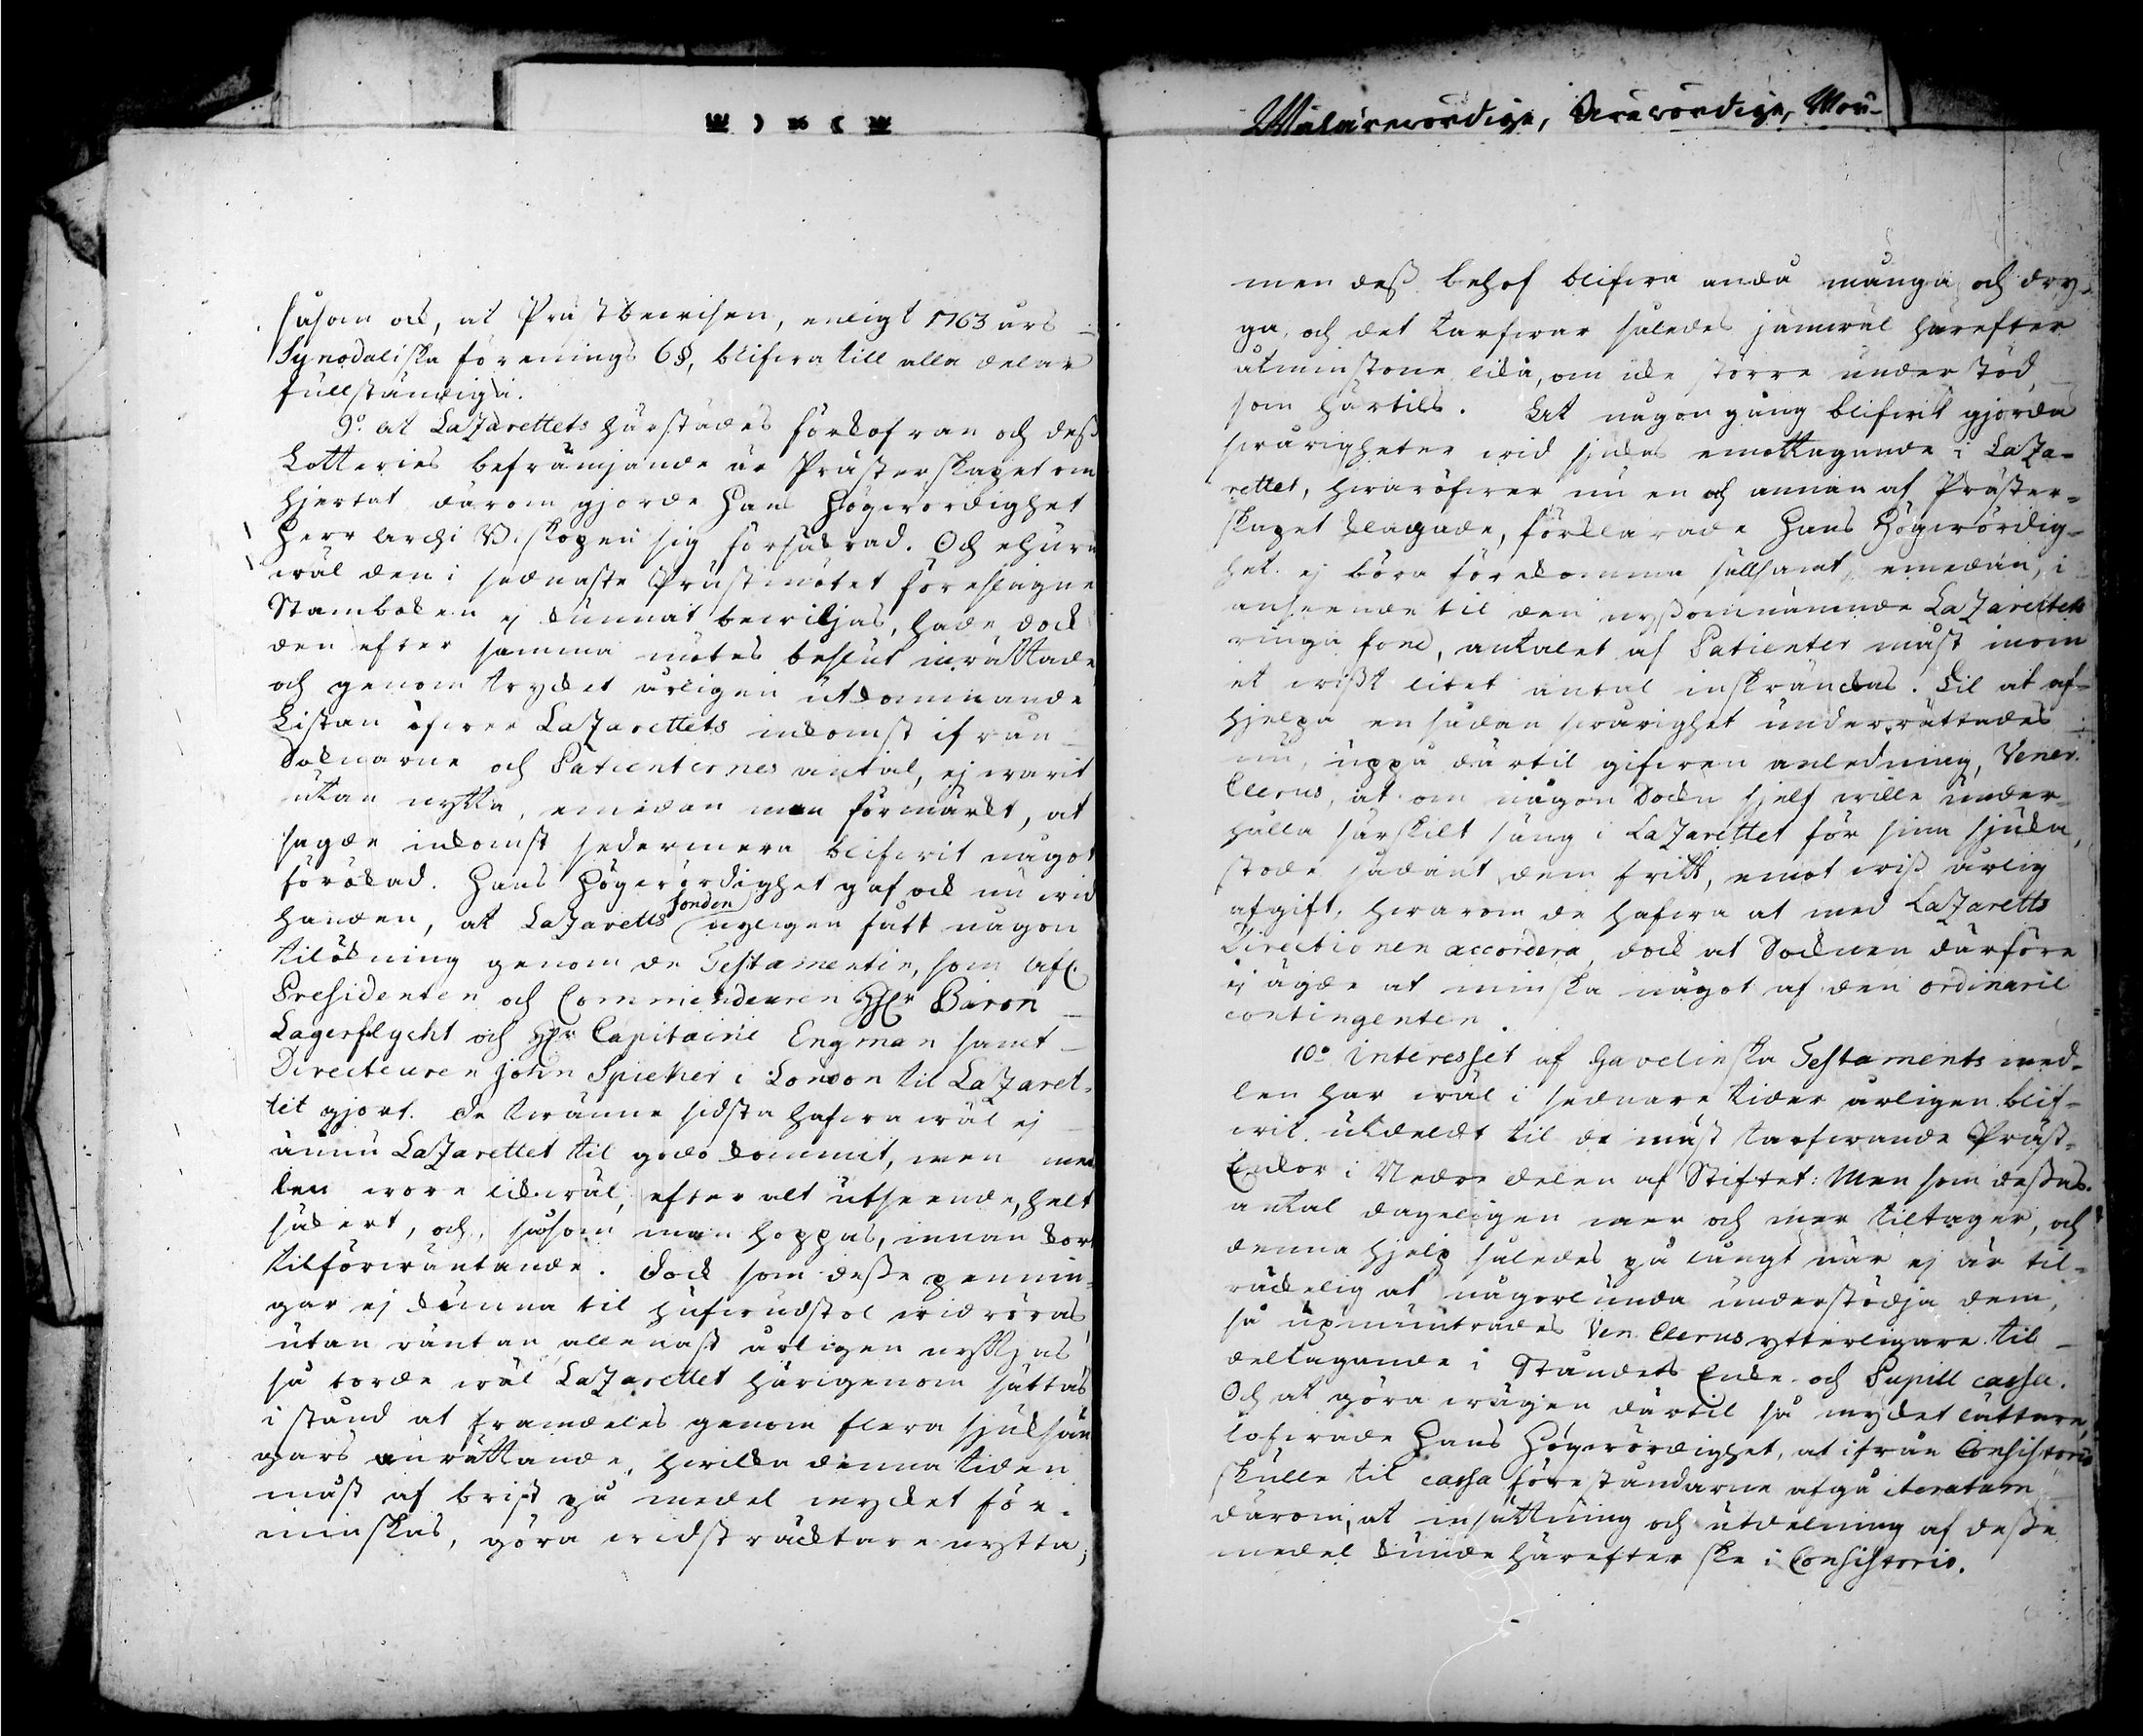 Wälärewördige, Ärewördige, Wörr-
såsom ock, at Prästbewisen, enligt 1763 års
Synodaliska förenings 6§, blifwa till alla delar
fullständiga.
9:o at Lazarettets härstädes förkofran och dess
Lotteries befrämjande är Prästerskapet om
hjertat, därom gjorde Hans Högwördighet
Herr Archi Biskopen sig försäkrad. Och ehuru
wäl den i sednaste Prästmötet föreslagne
Stamboken ej kunnat bewiljas, hade dock
den efter samma mötes beslut inrättade
och genom trycket årligen utkommande
Listan öfwer Lazarettets inkomst ifrån
Soknarne och Patienternes antal, ej warit
utan nytta, emedan man förmärkt, at
sagde inkomst sedermera blifwit något
förökad. Hans Högwördighet gaf ock nu wid
fonden
handen, at Lazaretts nyligen fått någon
tilökning genom de Testamenten, som Afl.
Presidenten och Commendeuren HHr Baron
Lagerflycht och Hr Capitaine Engman samt
Directeuren John Spieker i London til Lazaret-
tet gjort. De twänne sidsta hafwa wäl ej
ännu Lazarettet til godo kommit, men med
len wore likwäl, efter alt utseende, helt
säkert, och, såsom man hoppas, innan kort
tilförwäntande. Dock som desse pennin-
gar ej kunna til hufwudstol widröras,
utan räntan allenast årligen nyttjas
så torde wäl Lazarettet härigenom sättas
i stånd at framdeles genom flera sjuksän
gars anrättande, hwilka denna tiden
måst af brist på medel mycket för-
minskas, göra widsträcktare nytta;
men dess behof blifwa ändå många och dry-
ga, och det tarfwar således jämwäl härefter
åtminstone lika, om icke större understöd,
som härtils. At någon gång blifwit gjorda
swårigheter wid sjukas emottagande i Laza-
rettet, hwaröfwer nu en och annan af Präster-
skapet klagade, förklarade Hans Högwördig-
het ej böra förekomma sällsamt, emedan, i
anseende til den nyssomnämnde Lazarettets
ringa fond, antalet af Patienter måst inom
et wisst litet antal inskränckas. Til at af-
hjelpa en sådan swårighet underrättades
nu, uppå därtil gifwen anledning, Vener.
Clerus, at om någon Sockn sjelf wille under-
hålla särskilt säng i Lazarettet för sina sjuka,
stode sådant dem fritt, emot wiss årlig
afgift, hwarom de hafwa at med Lazaretts
Directionen accordera, dock at Socknen därföre
ej ägde at minska något af den ordinarie
contingenten.
10:o Interesset af Gavelinska Testaments med-
len har wäl i sednare tider årligen blif-
wit utdeldt til de mäst tarfwande Präst-
Enkor i Nedre delen af Stiftet: Men som dessas
antal dageligen mer och mer tiltager, och
denna hjelp således på långt när ej är til-
räckelig at någorlunda understödja dem,
så upmuntrades Ven. Clerus ytterligare til
deltagande i Ståndets Enke- och Pupill cassa.
Och at göra wägen därtil så mycket lättare,
lofwade Hans Högwördighet, at ifrån Consistorio
skulle til cassa föreståndarne afgå iteratum
därom, at insättning och utdelning af desse
medel kunde härefter ske i Consistorio.